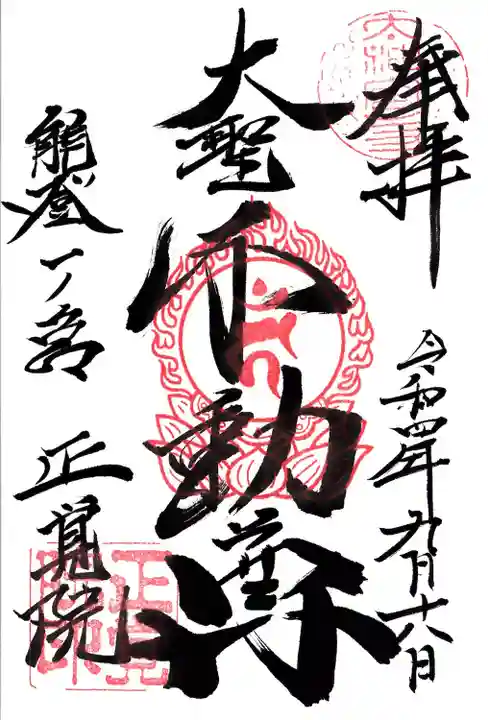 奉拝
令和四年九月十八日
大聖不動尊
能登一ノ宮
正覚院